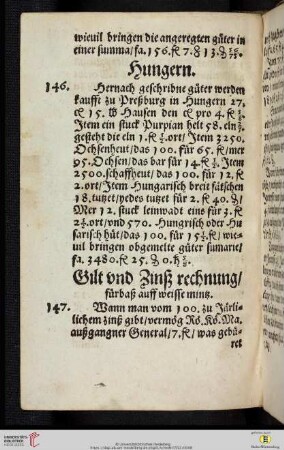 wieuil bringen die angeregten güter in
einer summa/fa.156.fl 7.ß 13.₰
Hungern.
146. Hernach geschribne güter werden
kaufft zu Preßburg in Hungern 27.
15. lb Hausen den pro 4.fl
Item ein stuck Purpian helt 58. eln
gesteht die eln 1.fl ort/ Item 3250.
Ochsenheut/das 100. für 65. fl/mer
95. Ochsen/das bar für 14.fl Item
2500.schaffheut/das 100. für 12.fl
2.ort/Item Hungarisch breit fätschen
18.tutzet/yedes tutzet für 2.fl 40.₰/
Mer 12.stuck leinwadt eins für 3.fl
ort/vnd 570. Hungrisch oder Hu
ßarisch hüt/das 100. für 15 fl/wie
uil bringen obgemelte güter sumarie/
fa. 3480.fl 25.₰ 0.
Gilt vnd Zinß rechnung/
fürbaß auff weisse mintz.
147. Wann man vom 100. zu Järli-
lichem zinß gibt/vermög Rö.Kö.Ma.
außgangner General/7.fl/was gebü-
ret